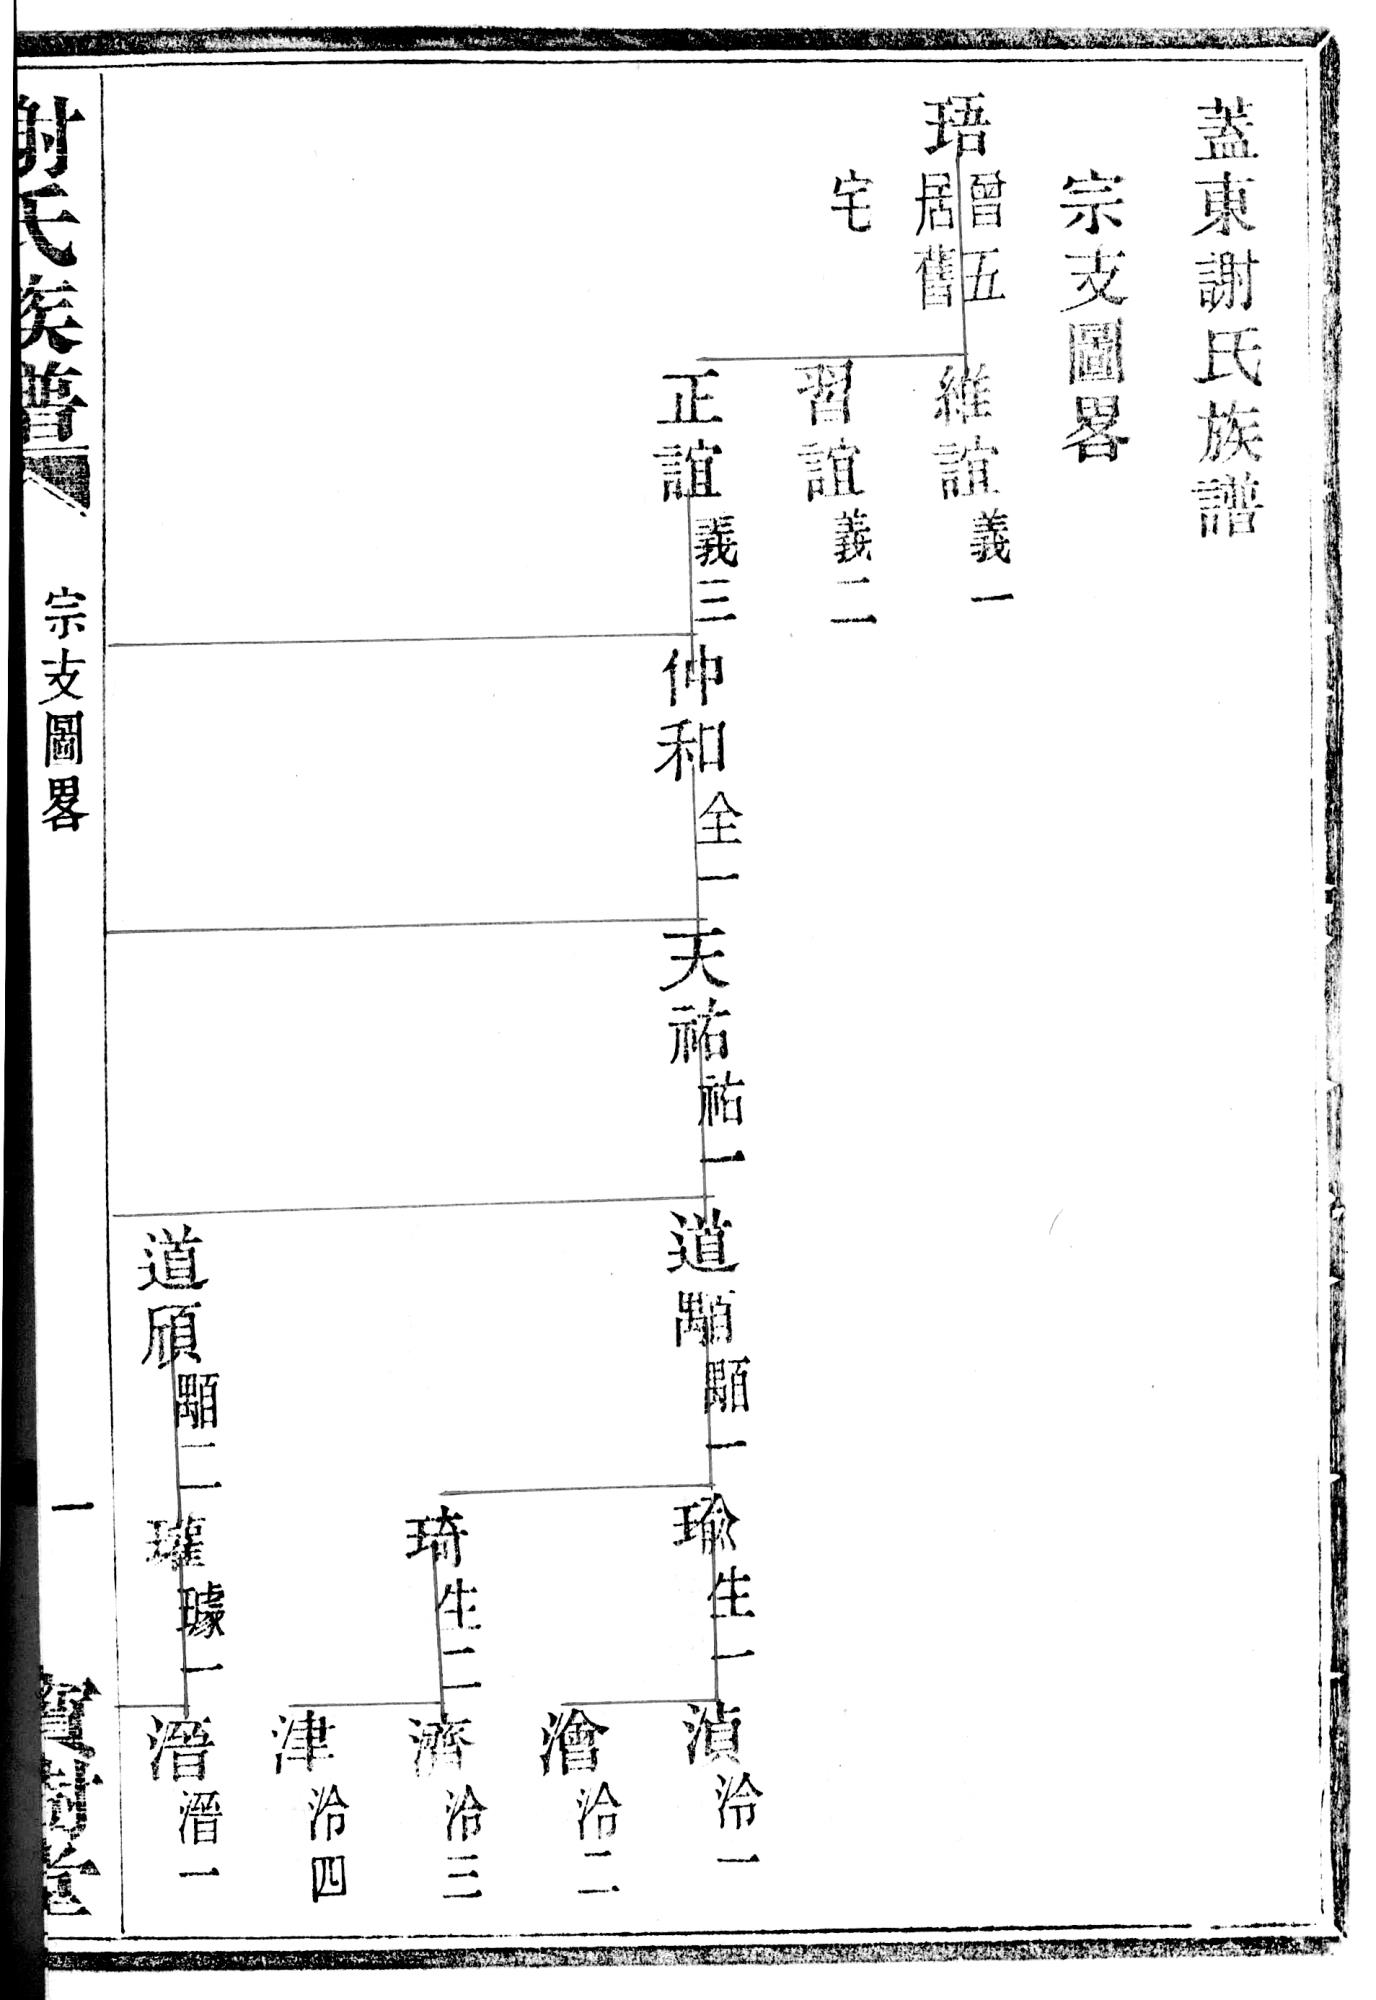 蓋東謝氏族譜
宗支圖畧
珸
曾五
居舊
宅
維誼 義一
習誼 義二
正誼 義三
仲和 全一
天祐 祐一
道顒 顒一
道頎 顒二
瑜 生一
琦 生二
瓘 璩一
湞 泠一
澮 泠二
濟 泠三
津 泠四
潘 潘一
謝氏族譜
宗支圖畧
一
寶樹堂